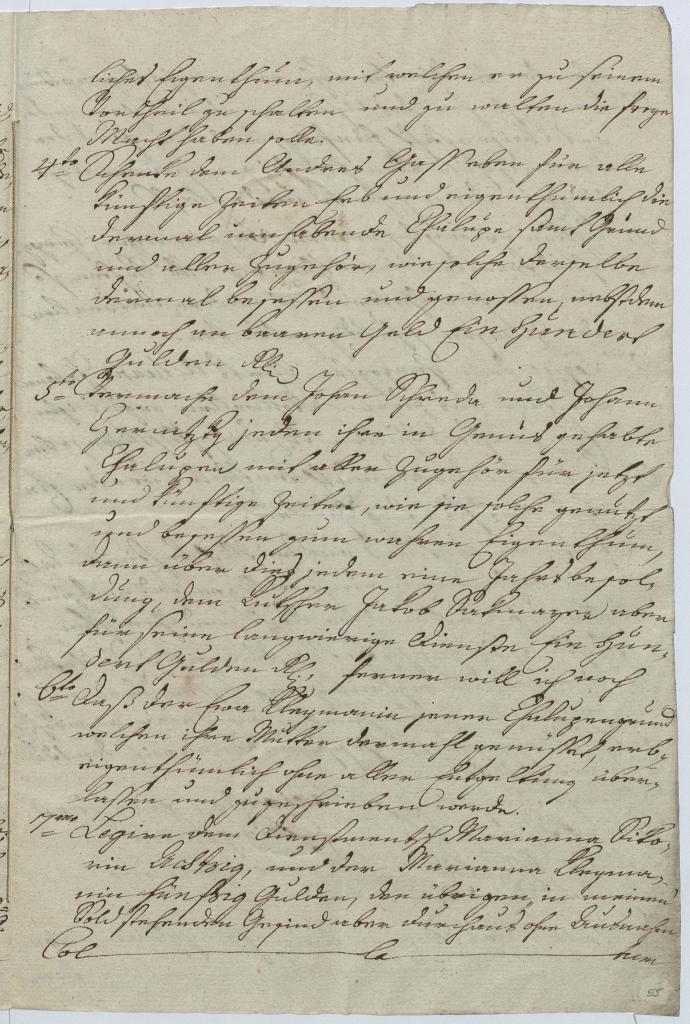 liches Eigenthum, mit welchen er zu seinem
Vortheil zu schalten und zu walten die freye
Macht haben solle.
4to Schenke dem Andres Gass eben für alle
künftige Zeiten Erb und eigenthümlich die
dermal innhabende Chalupe samt Grund
und aller Zugehör, wie solche derselbe
dermal besessen und genossen, nebst dem
annoch an baaren Geld Ein Hundert
Gulden Rh.
5to Vermache dem Johan Schreda und Johann
jeden ihre in Genus gehabte
Chalupen mit aller Zugehör für jetzt
und künftige Zeiten, wie sie solche genützt
und besessen zum wahren Eigenthum,
dann über dies jedem eine Jahrs besol-
dung, dem Kutscher Jakob aber
für seine langwierige Dienste Ein Hun-
dert Gulden Rh, ferner will ich noch
6to Daß der Eva Kleymanin jener Chalupengrund
welchen ihre Mutter dermahl genüsset, erb-
eigenthümlich ohne aller Entgeltung über-
lassen und zugeschrieben werde.
7mo Legire dem Dienstmensch Marianna Siko-
rin Achtzig, und der Marianna Kleyma-
nin fünfzig Gulden, den übrigen in meinen
Sold stehenden Gesind aber durchaus ohne Ausnahm
Col la num
55